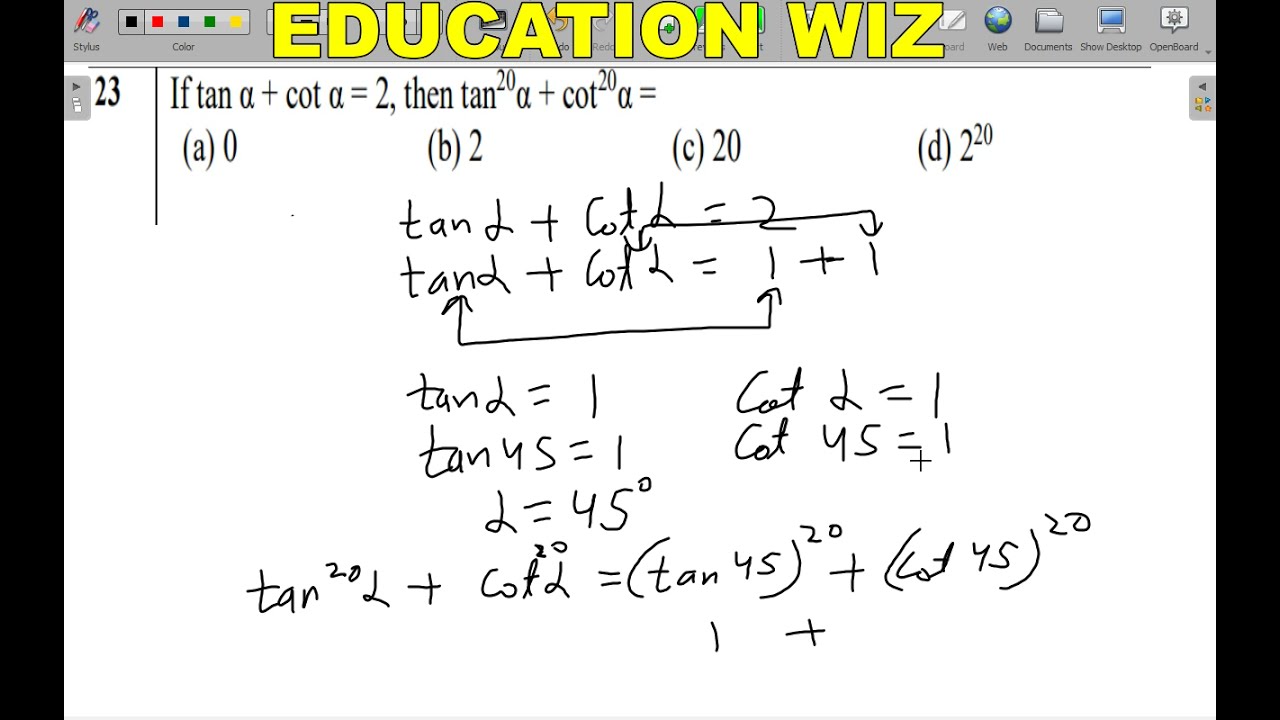 EDUCATION WIZ
Stylus
Color
Web
Documents
Show Desktop
OpenBoard
23 If tan α + cot α = 2, then tan²⁰α + cot²⁰α =
(a) 0 (b) 2 (c) 20 (d) 2²⁰
tan α + cot α = 2
tan α + cot α = 1 + 1
tan α = 1 cot α = 1
tan 45 = 1 cot 45 = 1
α = 45⁰
tan²⁰α + cot²⁰α = (tan 45)²⁰ + (cot 45)²⁰
1 +